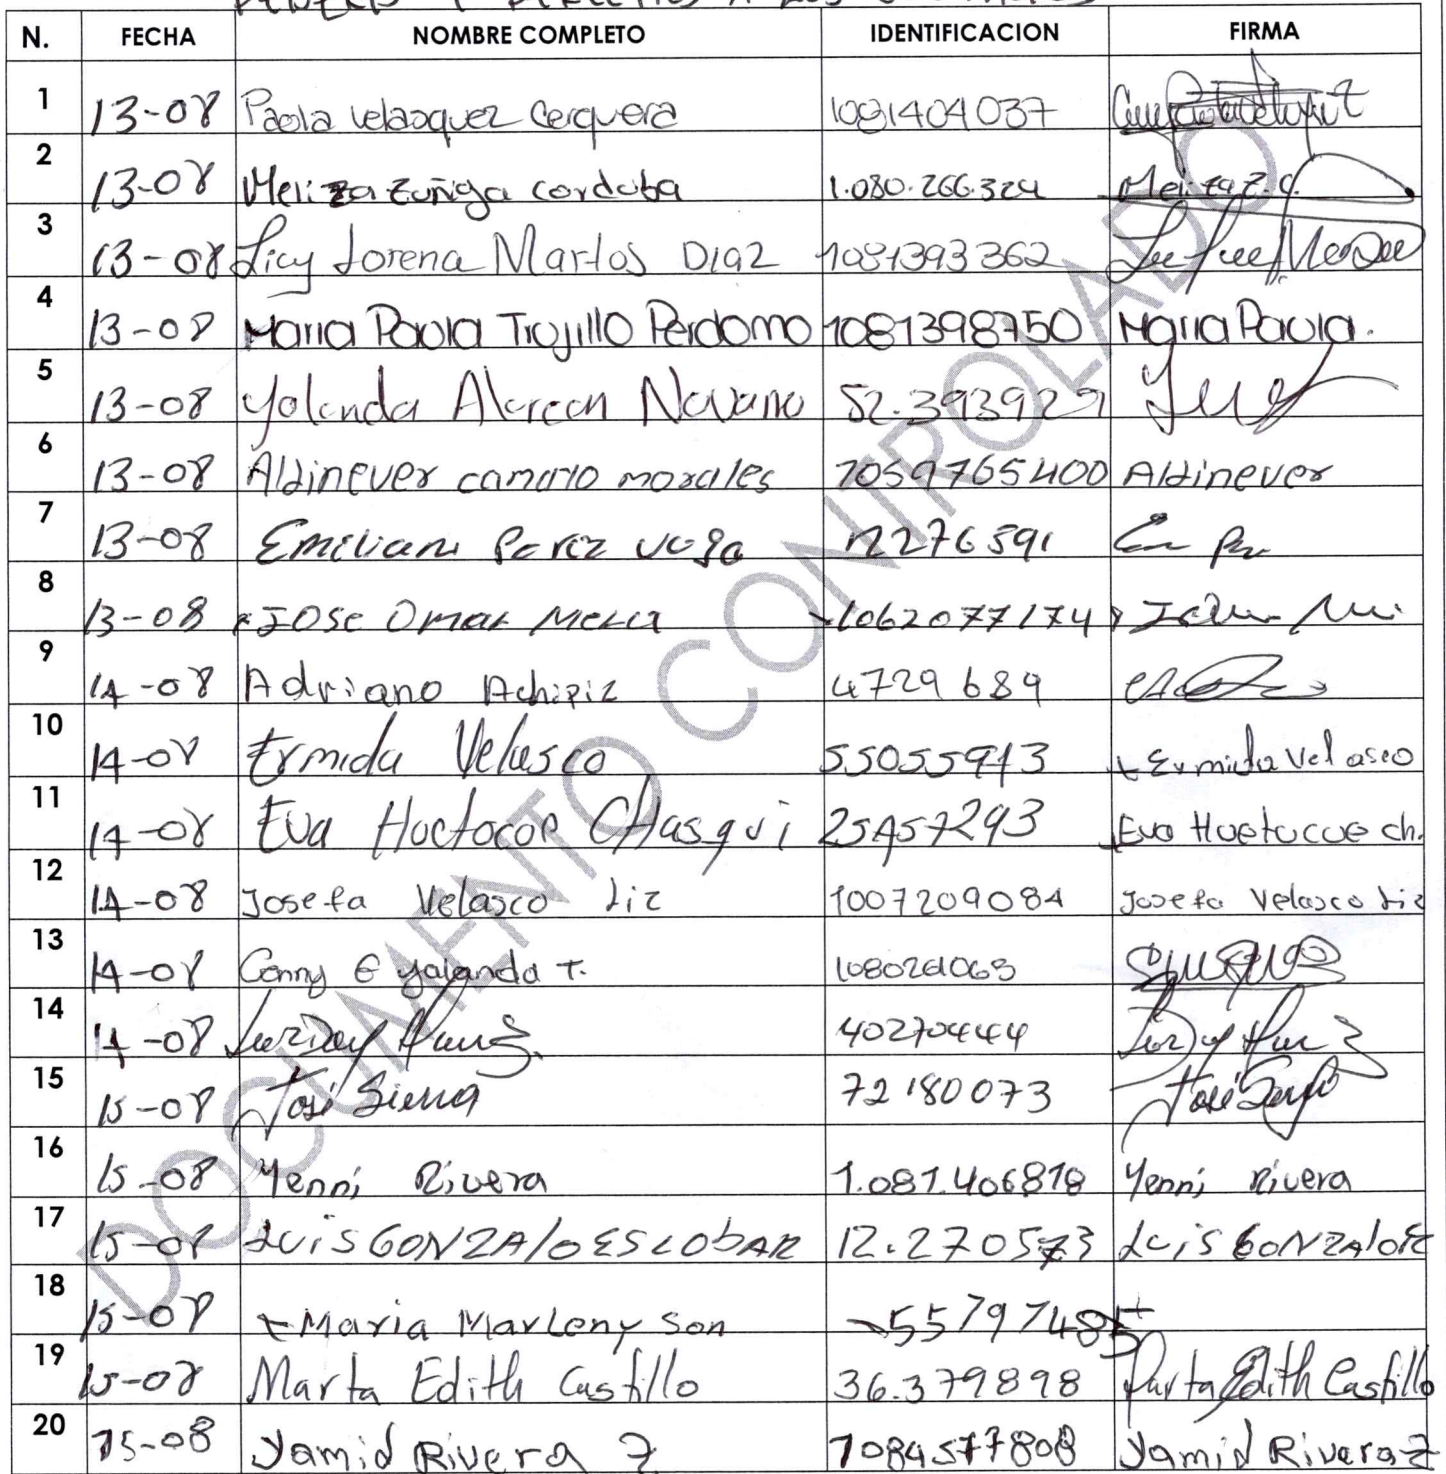 DEBERES Y DERECHOS A LOS USUARIOS
N. FECHA NOMBRE COMPLETO IDENTIFICACION FIRMA
1 13-08 Paola Velasquez Cerquera 1081404037
2 13-08 Meliza Zuñiga cordoba 1.080.266.324 Meliza Z.C.
3 13-08 Licy Lorena Martos Diaz 1081393362
4 13-08 Maria Paola Trujillo Perdomo 1081398750 Maria Paola.
5 13-08 Yolanda Alarcon Navarro 52.393929
6 13-08 Aldinever camayo morales 1059765400 Aldinever
7 13-08 Emiliano Perez 12276591
8 13-08 JOSE Omar Mera 1062077174
9 14-08 Adriano Achipiz 4729689
10 14-08 Ermida Velasco 55055913 Ermida Velasco
11 14-08 Eva Huetocoe Chasqui 25457293 Eva Huetucue ch.
12 14-08 Josefa Velasco Liz 1007209084 Josefa Velasco Liz
13 14-08 Conny E yalanda T.
14 14-08 40270444
15 15-08 José Sierra 72180073
16 15-08 Yenni Rivera 1.081.406818 Yenni Rivera
17 15-08 LuiS GONZAlO ESCObAR 12.270573 LuiS GONZAlO
18 15-08 Maria Marleny Son 55797485
19 15-08 Marta Edith Castillo 36.379898 Marta Edith Castillo
20 15-08 Yamid Rivera Z 1084577808 Yamid Rivera Z
DOCUMENTO CONTROLADO